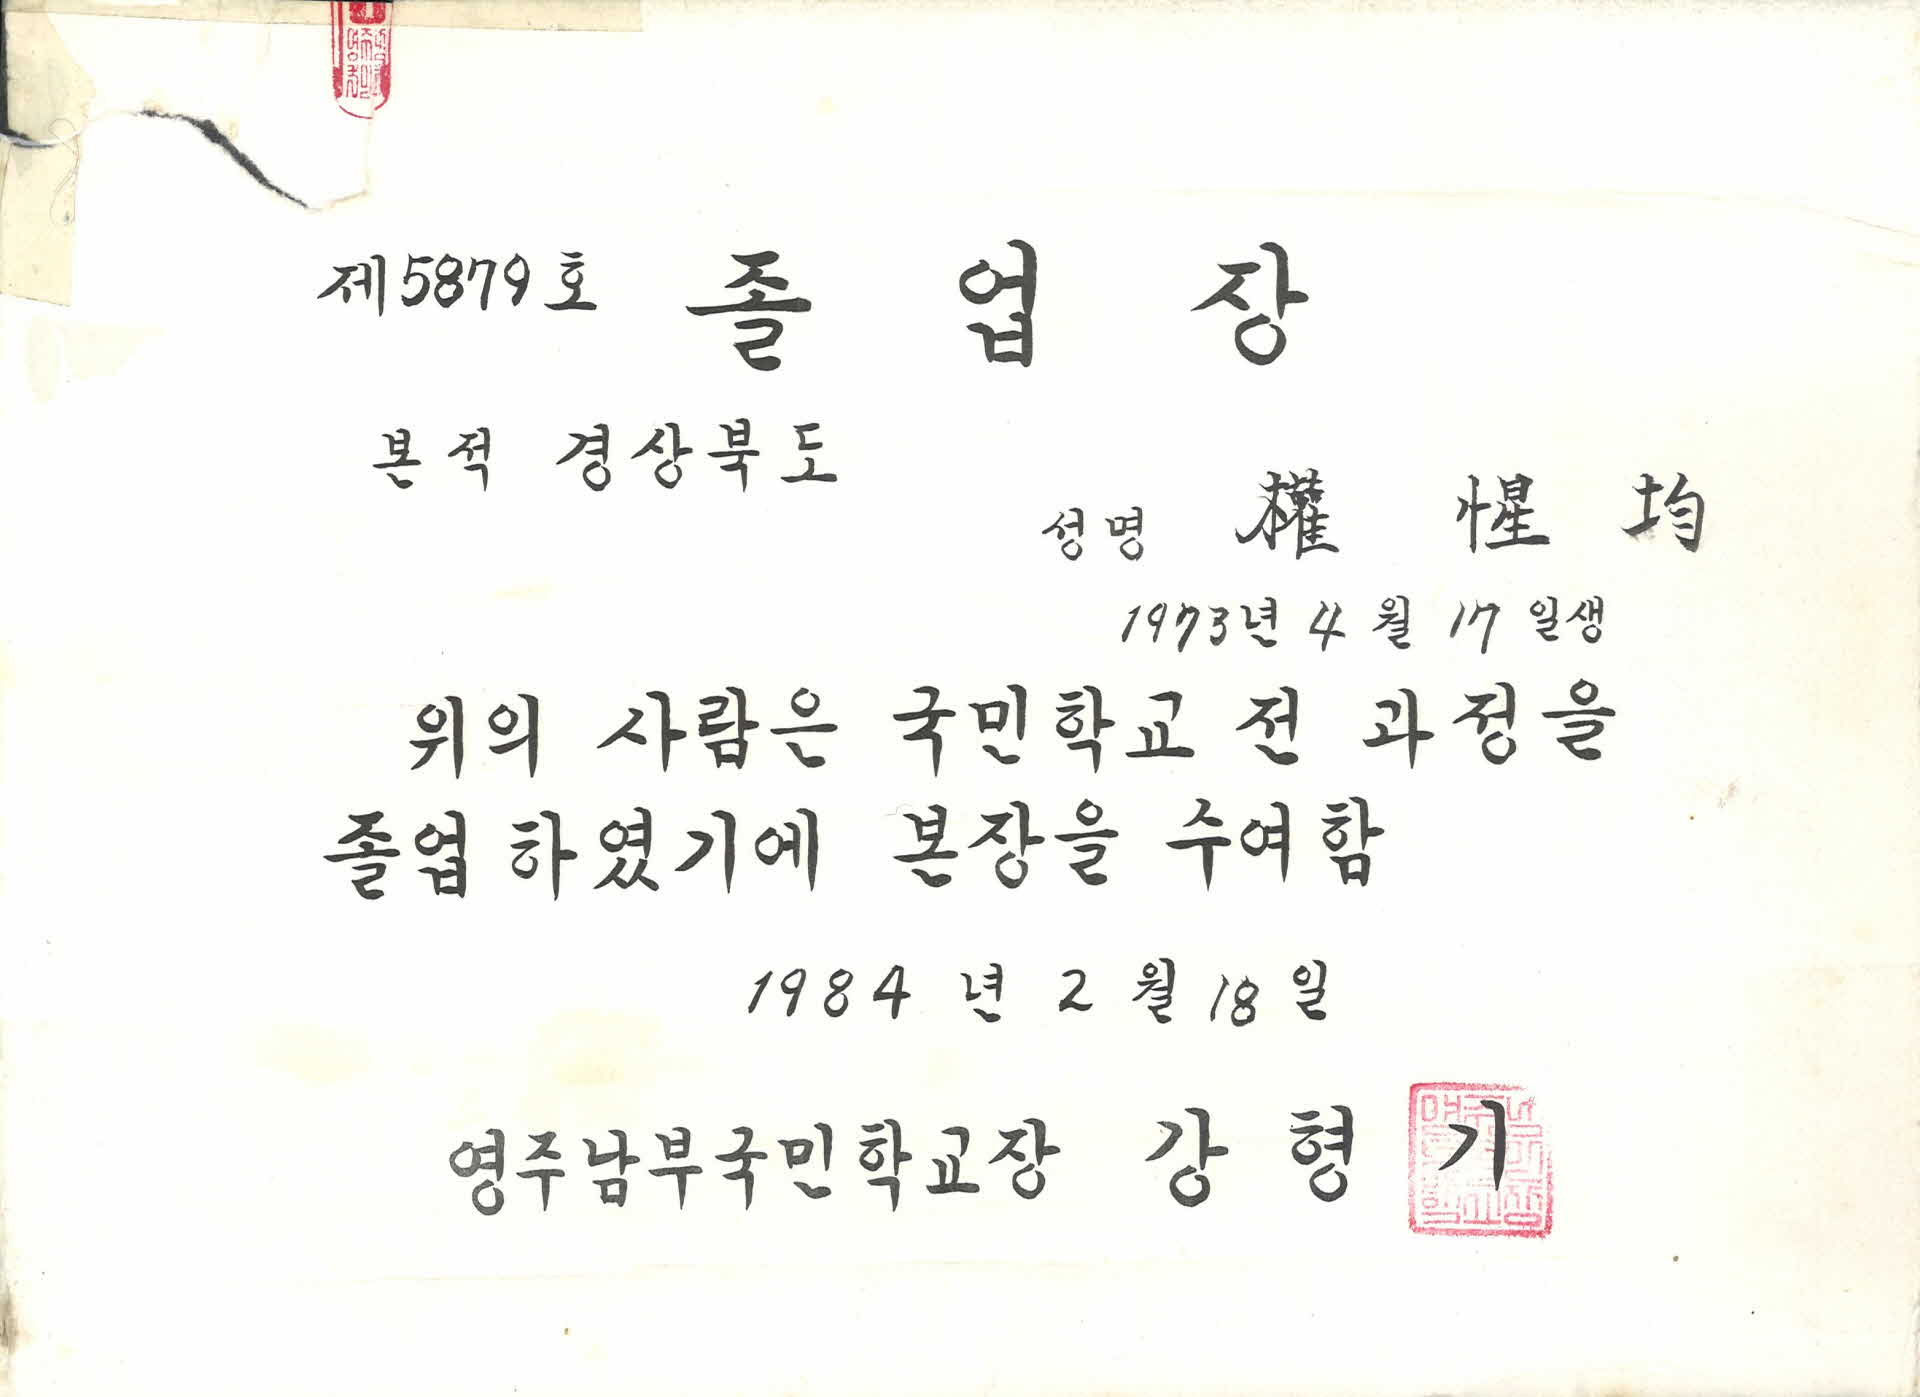 제5879호 졸업장
본적 경상북도
성명 權 惺 均
1973년 4월 17일생
위의 사람은 국민학교 전 과정을
졸업하였기에 본장을 수여함
1984년 2월 18일
영주남부국민학교장 강형기